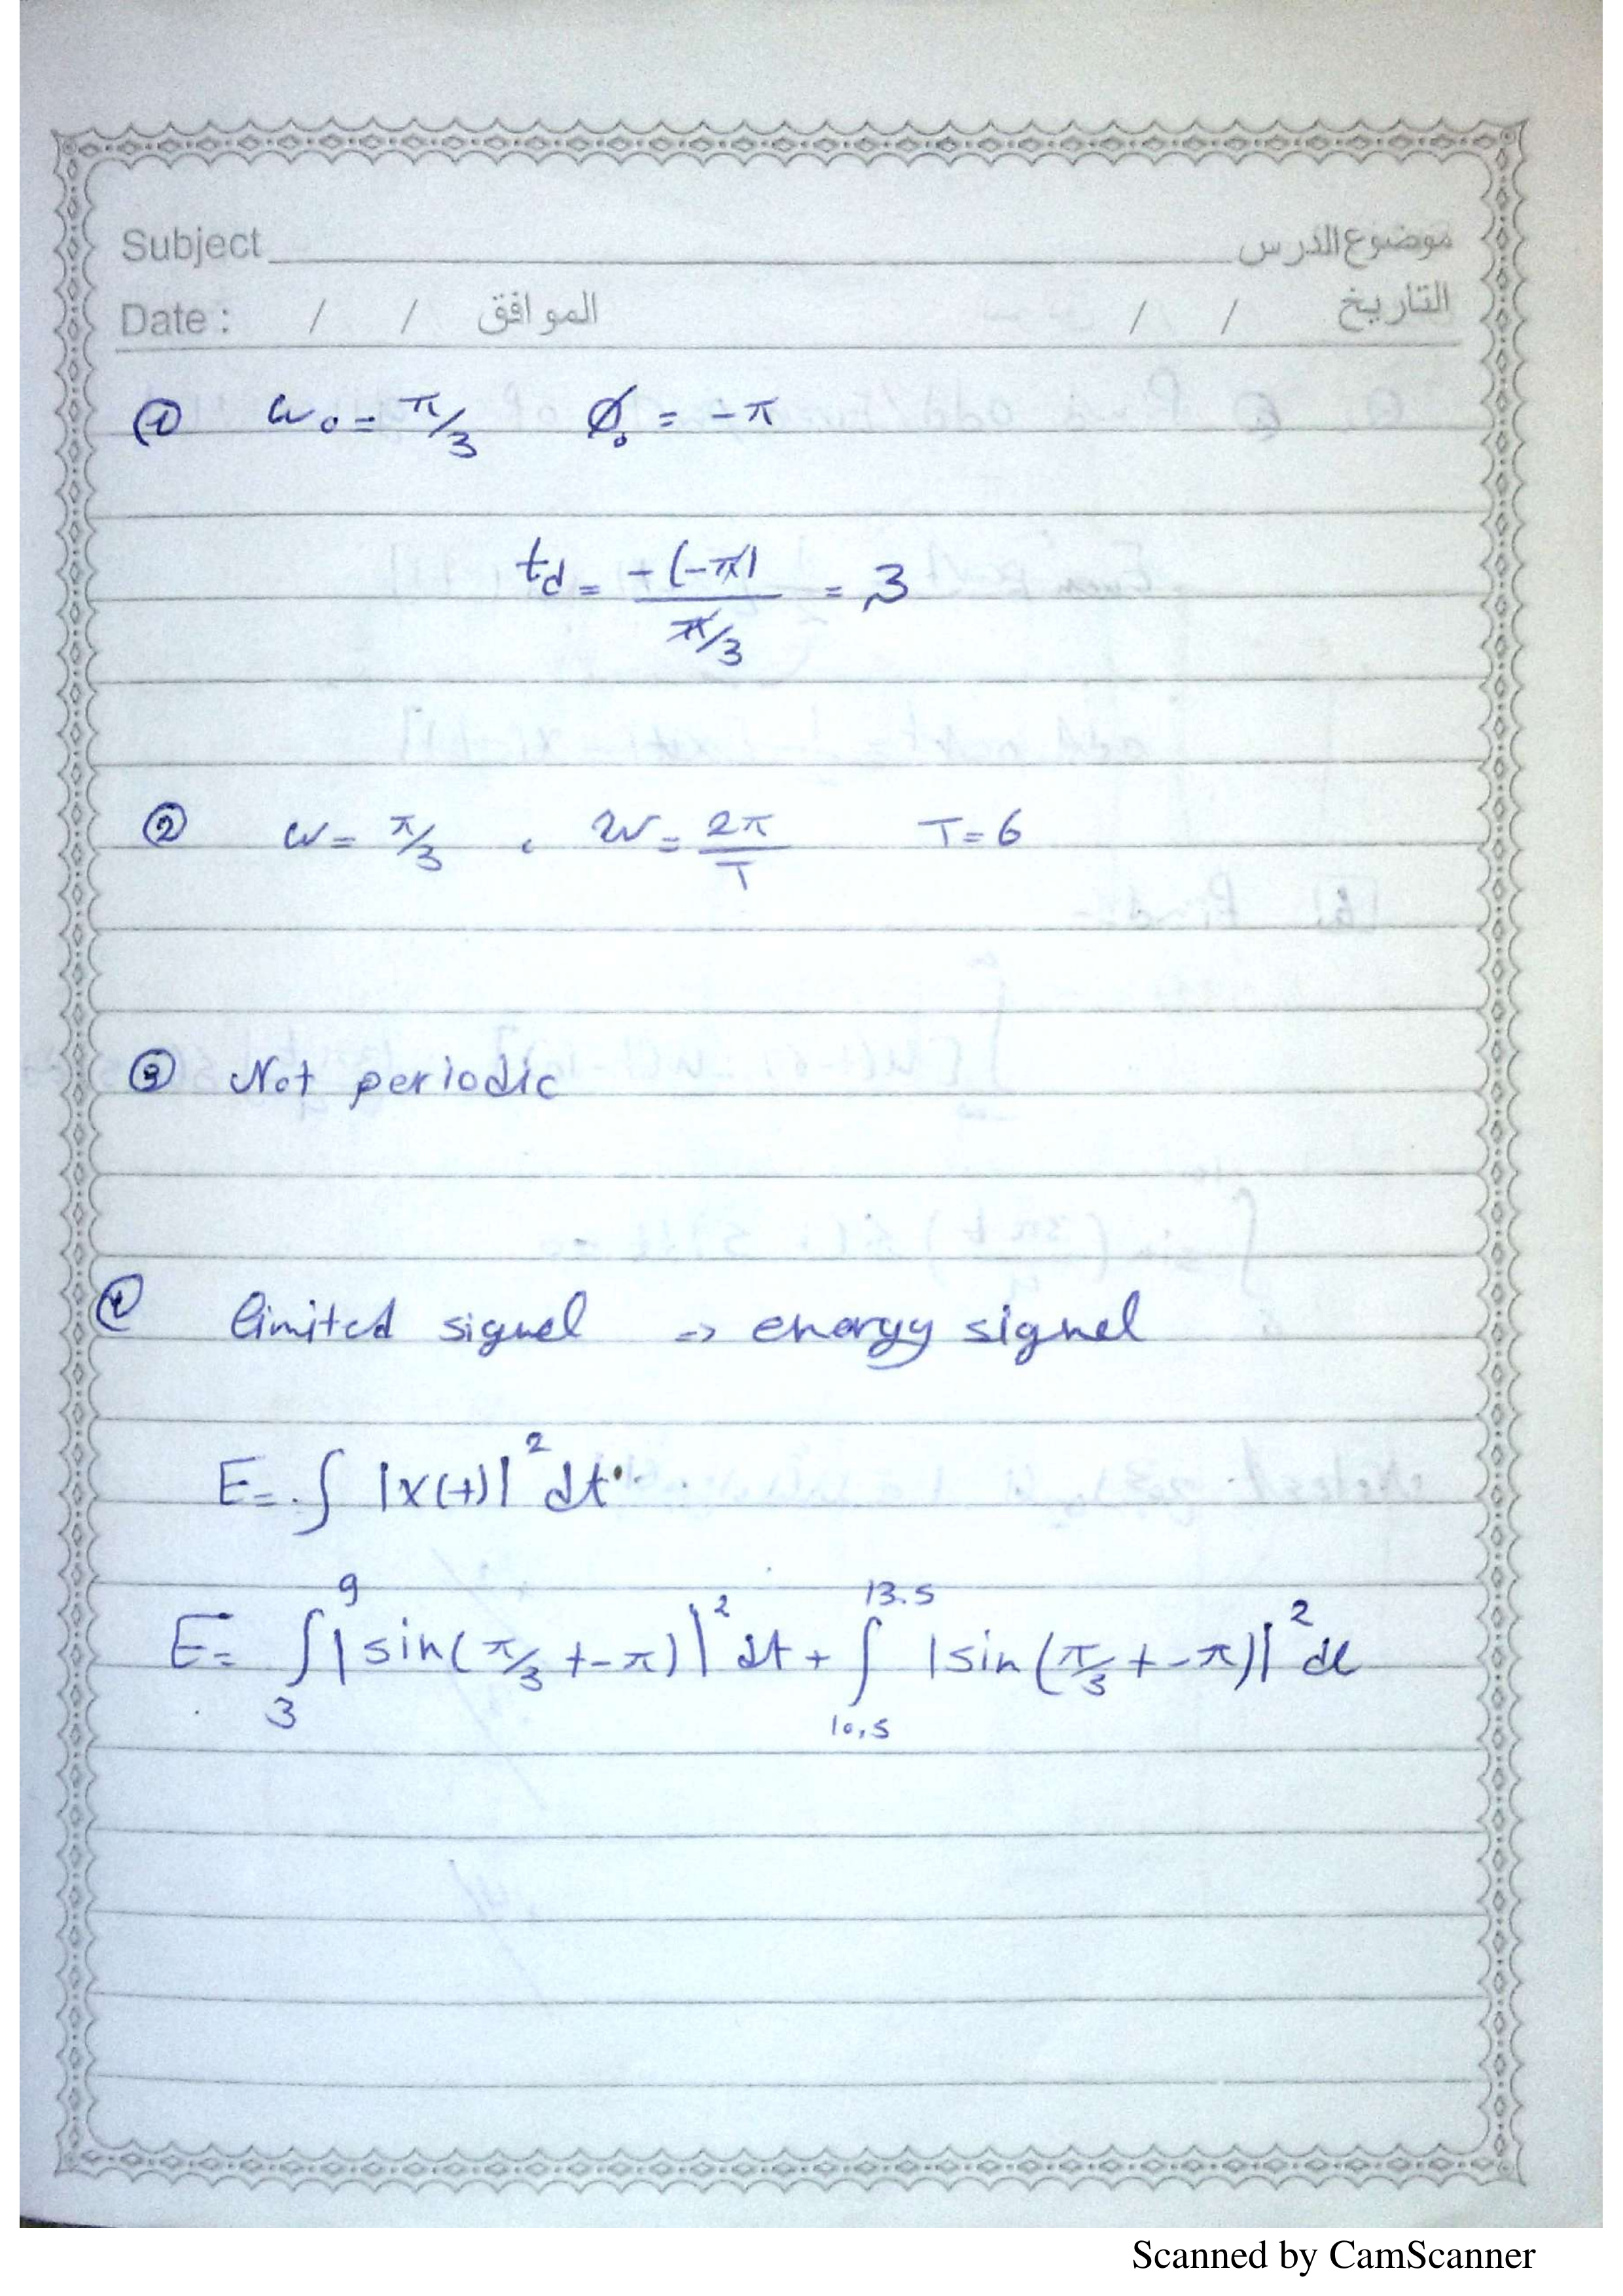 Subject موضوع الدرس
Date : / / الموافق / / التاريخ
① ω₀ = π/3 ϕ₀ = -π
t_d = -(-π) / π/3 = 3
② ω = π/3 , ω = 2π/T T = 6
③ Not periodic
④ limited signel => energy signel
E = ∫ |x(t)|² dt
E = ∫₃⁹ |sin(π/3 t - π)|² dt + ∫₁₀.₅¹³·⁵ |sin(π/3 t - π)|² dt
Scanned by CamScanner